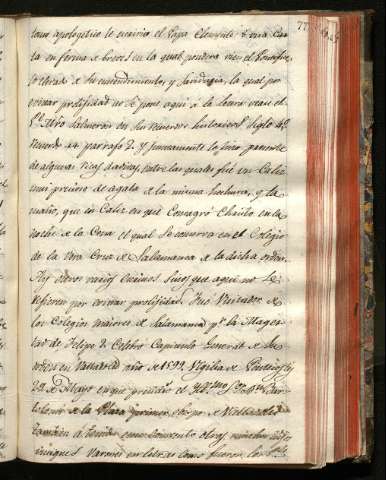 77
apologetico le escrivio el Papa Clemente 8 una Car
ta en forma de breve en la qual pondera bien el Pontifice
lo claro de su entendimiento, y Sabiduria, la qual por
evitar prolijidad no se pone aqui
Mro Salmeron en sus recuerdos historicos Siglo 4º
recuerdo 44 parrafo 2. y juntamente le hizo presente
de algunas ricas dadivas, entre las quales fue un Caliz
mui precioso de agata de la misma hechura, y ta
maño, que el Caliz en que Consagró Christo en la
noche de la Cena el qual se conserva en el Colegio
de la Vera Cruz de Salamanca de la dicha orden
otros varios que aqui no se
refieren por evitar prolijidad. Fue Visitador de
los Colegios maiores de Salamanca pr la Mages
tad de Felipe 2. Celebró Capitulo General de su
orden en Valladolid año de 1599 Vigilia de Pentecostes
de Mayo en que presidio el Illmo Sr Dn Bar
tolome de la Plaza primer obispo de Valladolid
tambien a tenido este Convento otros muchos hijos
insignes Varones en letras como fueron los Ptes